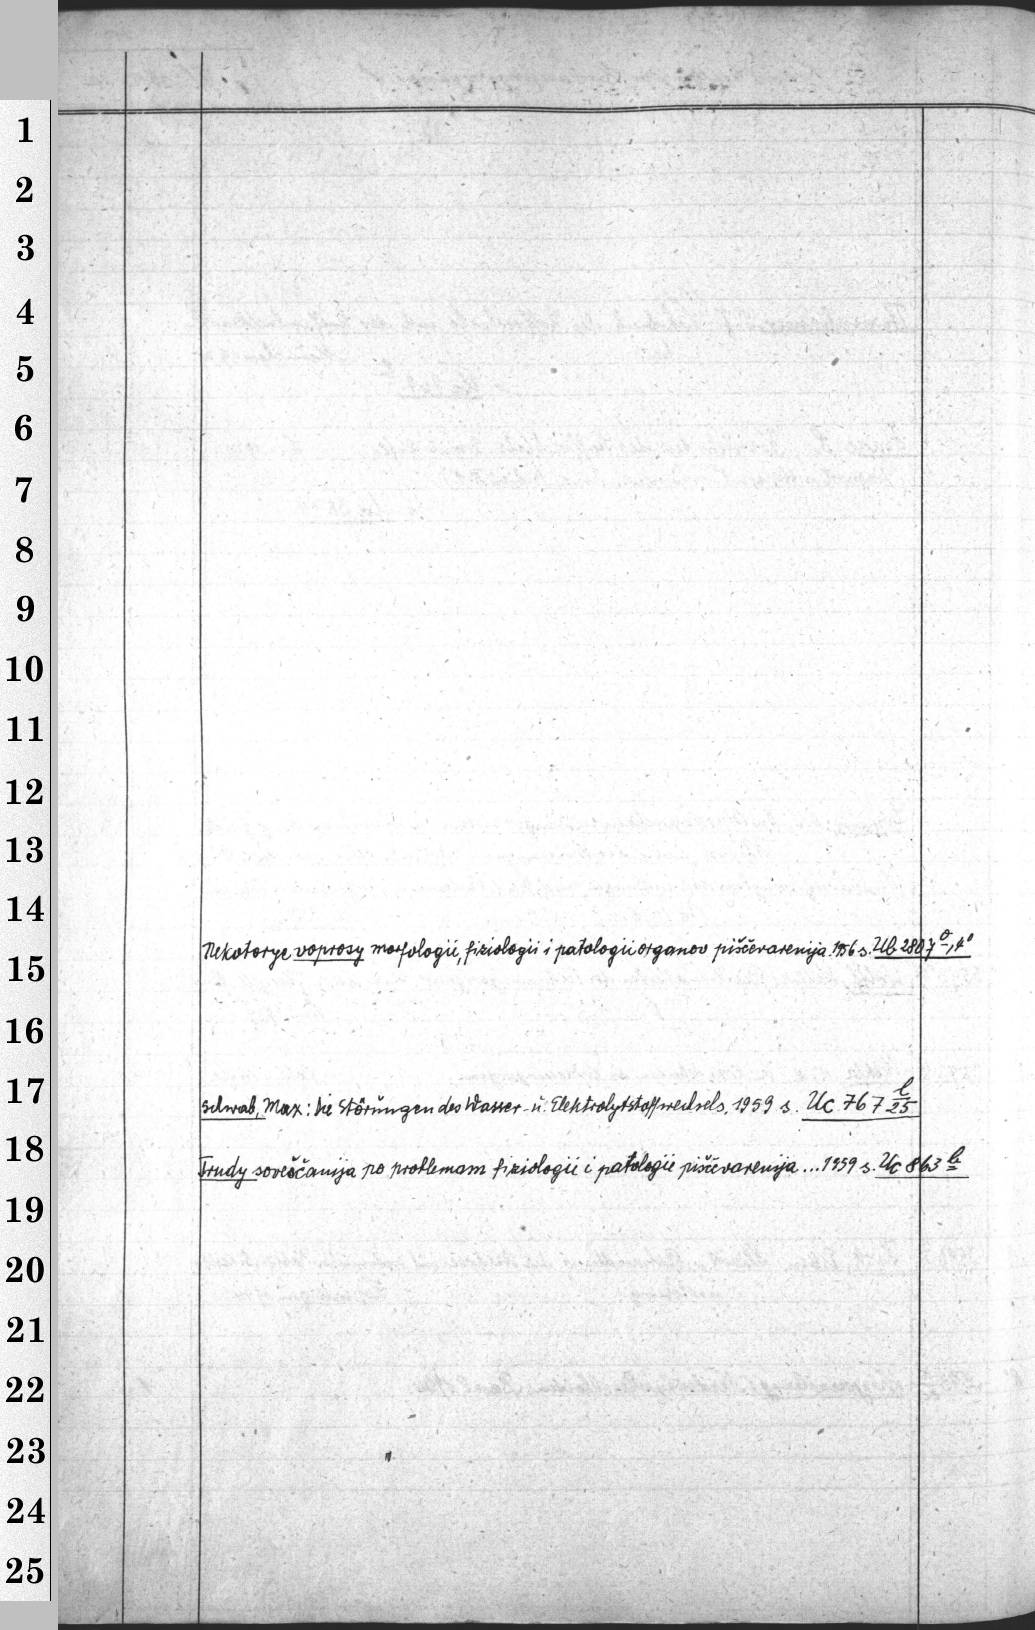 1
2
3
4
5
6
7
8
9
10
11
12
13
14
Nekotorye voprosy morfologii, fiziologii i patologii organov piščevarenija. 1956 s. Ub 2807 o, 4°
15
16
17
Schwab, Max: Die Störungen des Wasser- u. Elektrolytstoffwechsels, 1959 s. Uc 767 l/25
18
Trudy soveščanija po problemam fiziologii i patologii piščevarenija ... 1959 s. Uc 863
19
20
21
22
23
24
25